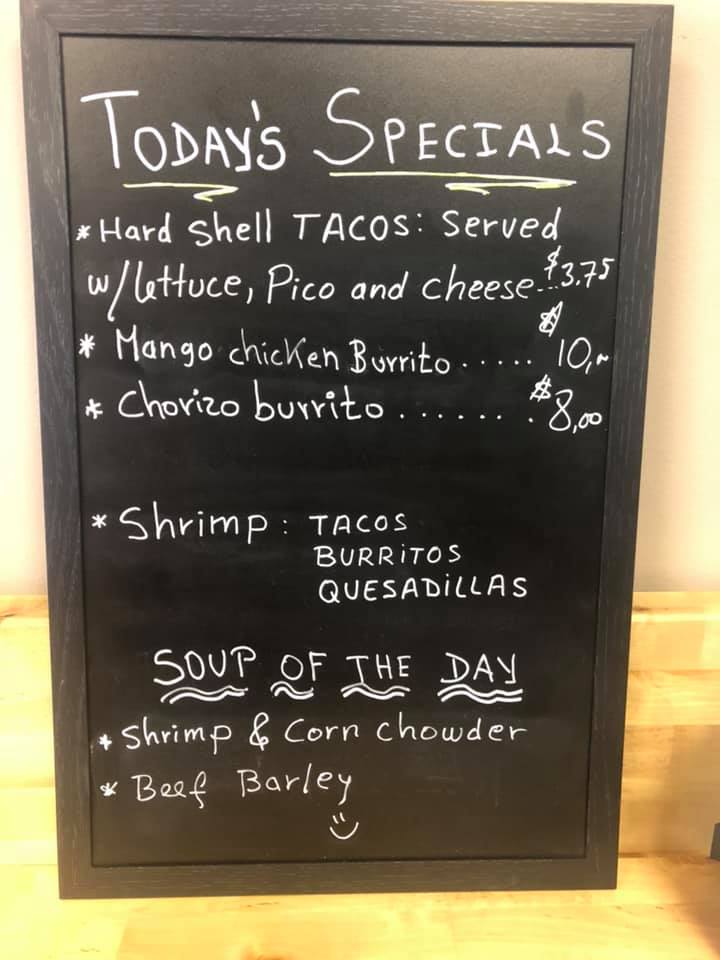 TODAY'S SPECIALS
* Hard Shell TACOS: Served
w/lettuce, Pico and cheese...$3.75
* Mango chicken Burrito ..... $10,~
* Chorizo burrito ....... $8,00
* Shrimp: TACOS
BURRITOS
QUESADILLAS
SOUP OF THE DAY
* Shrimp & Corn Chowder
* Beef Barley